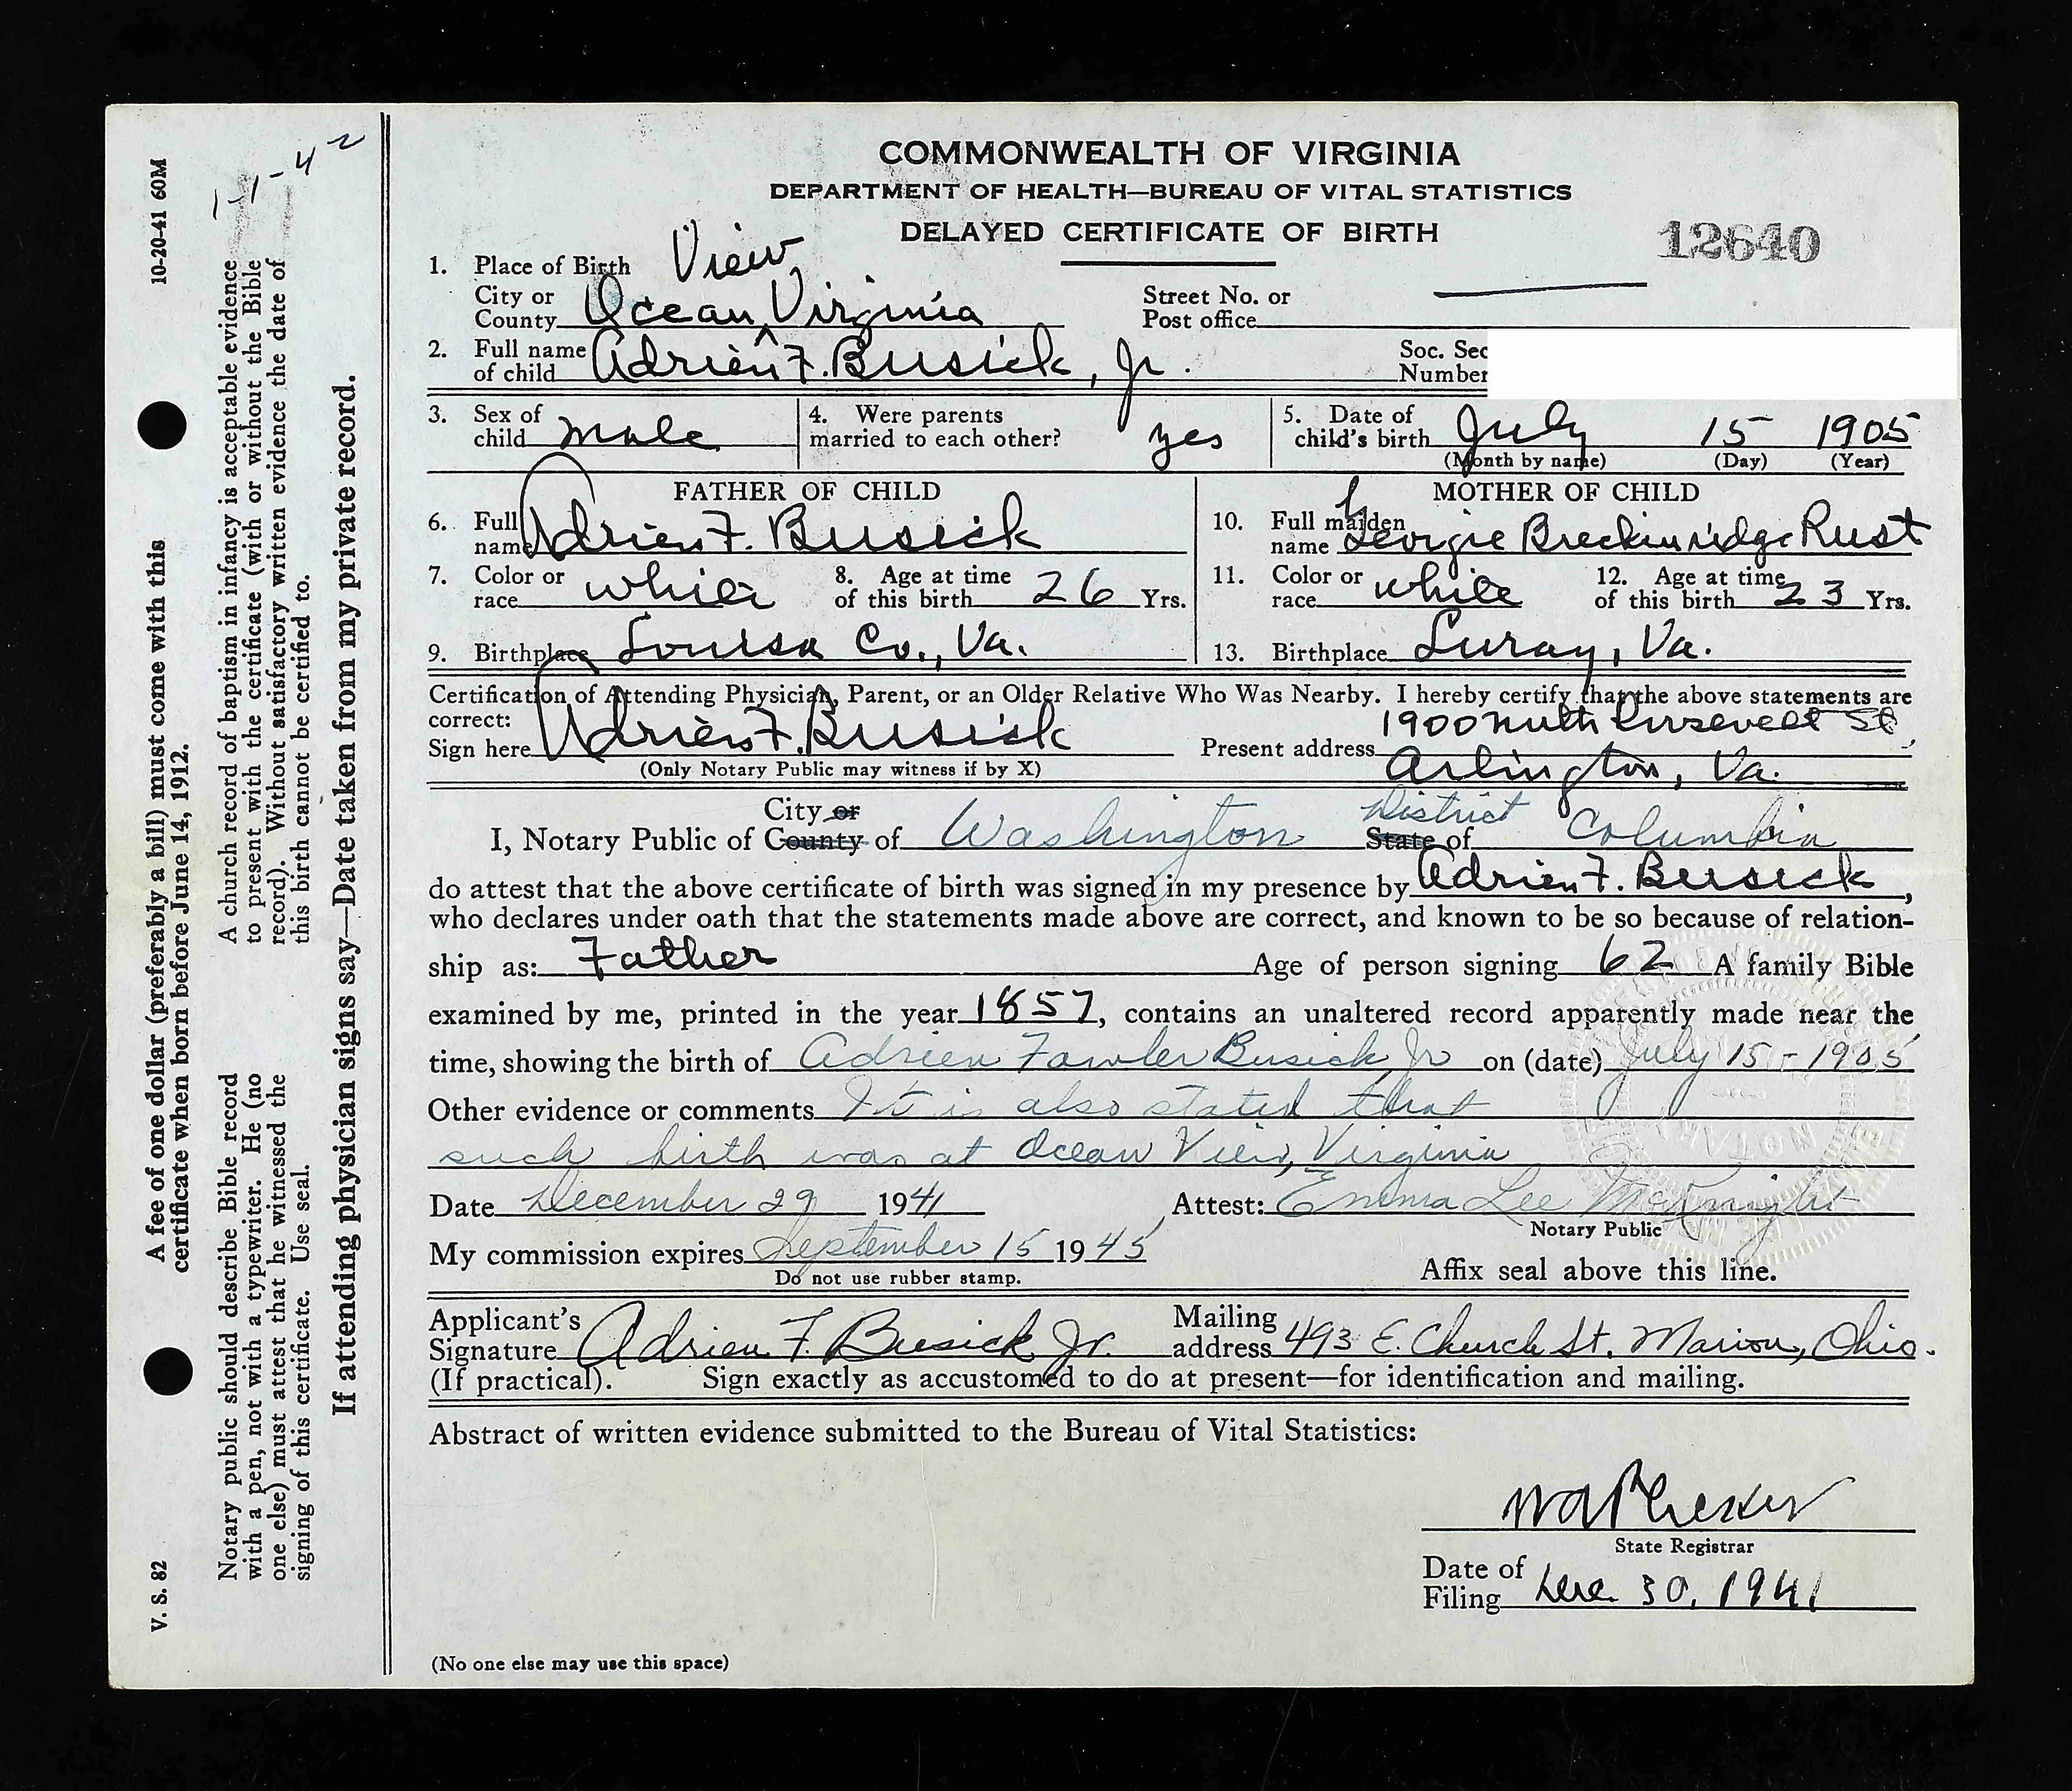 COMMONWEALTH OF VIRGINIA
DEPARTMENT OF HEALTH—BUREAU OF VITAL STATISTICS
DELAYED CERTIFICATE OF BIRTH
12640
1. Place of Birth View
City or County Ocean ^ Virginia Street No. or Post office
2. Full name of child Adrien F. Busick, Jr. Soc. Sec Number
3. Sex of child male 4. Were parents married to each other? yes 5. Date of child's birth July 15 1905
(Month by name) (Day) (Year)
FATHER OF CHILD MOTHER OF CHILD
6. Full name Adrien F. Busick 10. Full maiden name Georgie Breckinridge Rust
7. Color or race white 8. Age at time of this birth 26 Yrs. 11. Color or race white 12. Age at time of this birth 23 Yrs.
9. Birthplace Louisa Co., Va. 13. Birthplace Luray, Va.
Certification of Attending Physician, Parent, or an Older Relative Who Was Nearby. I hereby certify that the above statements are
correct:
Sign here Adrien F. Busick Present address 1900 North Roosevelt St.
Arlington, Va.
(Only Notary Public may witness if by X)
City or District
I, Notary Public of County of Washington State of Columbia
do attest that the above certificate of birth was signed in my presence by Adrien F. Busick,
who declares under oath that the statements made above are correct, and known to be so because of relation-
ship as: Father Age of person signing 62 A family Bible
examined by me, printed in the year 1857, contains an unaltered record apparently made near the
time, showing the birth of Adrien Fowler Busick, Jr on (date) July 15-1905
Other evidence or comments It is also stated that
such birth was at Ocean View, Virginia
Date December 29 1941 Attest: Emma Lee McKnight
Notary Public
My commission expires September 15 1945
Do not use rubber stamp. Affix seal above this line.
Applicant's Signature Adrien F. Busick Jr. Mailing address 493 E. Church St. Marion, Ohio.
(If practical). Sign exactly as accustomed to do at present—for identification and mailing.
Abstract of written evidence submitted to the Bureau of Vital Statistics:
State Registrar
Date of Filing Dec. 30, 1941
(No one else may use this space)
V. S. 82 10-20-41 60M
A fee of one dollar (preferably a bill) must come with this
certificate when born before June 14, 1912.
1-1-42
Notary public should describe Bible record
with a pen, not with a typewriter. He (no
one else) must attest that he witnessed the
signing of this certificate. Use seal.
A church record of baptism in infancy is acceptable evidence
to present with the certificate (with or without the Bible
record). Without satisfactory written evidence the date of
this birth cannot be certified to.
If attending physician signs say—Date taken from my private record.